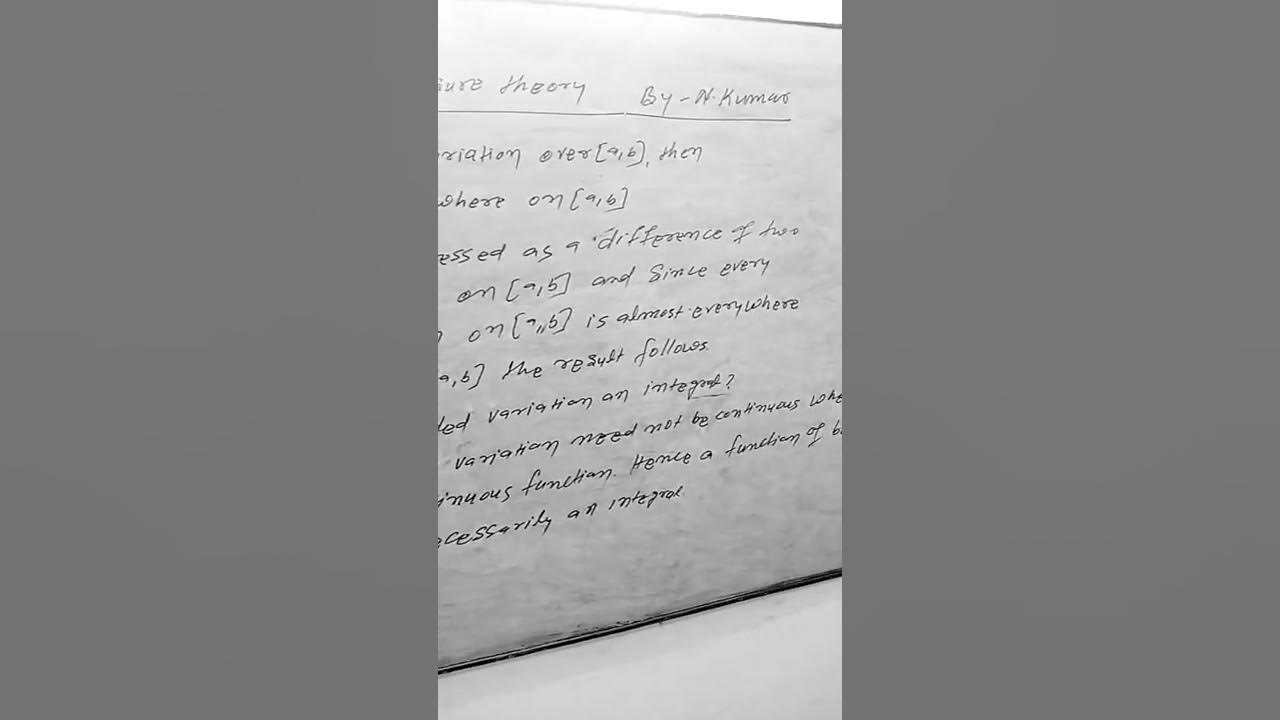 sure theory By - N. Kumar
riation over [a,b], then
where on [a,b]
essed as a difference of two
on [a,b] and Since every
on [a,b] is almost everywhere
a,b] the result follows.
ded variation an integral?
variation need not be continuous whe
inuous function. Hence a function of b
ecessarily an integral